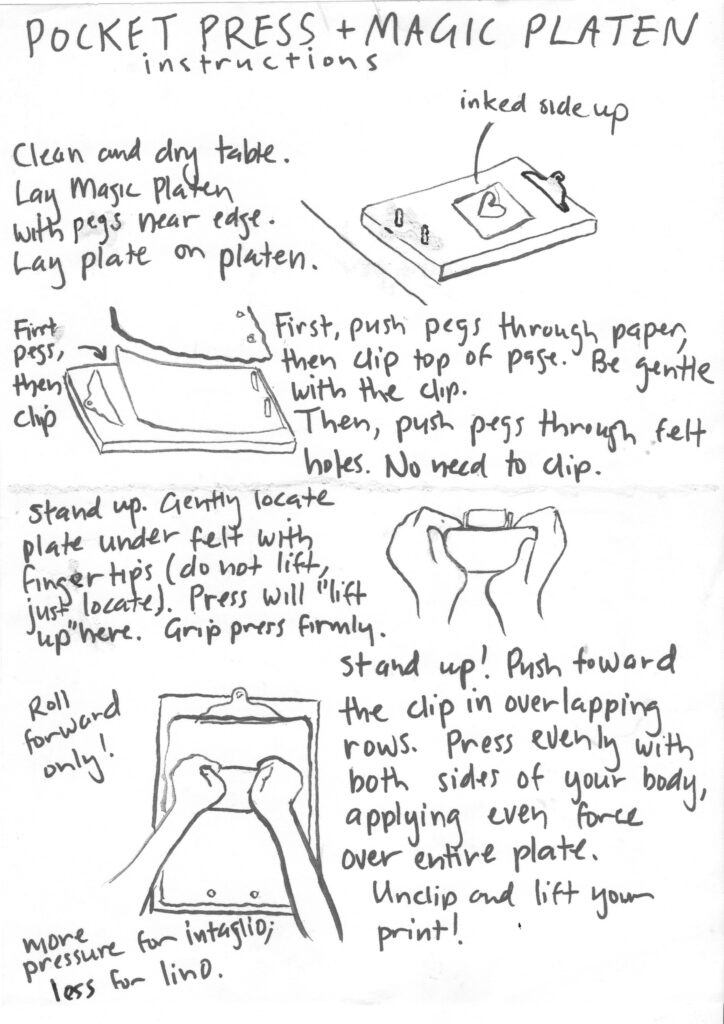 POCKET PRESS + MAGIC PLATEN
instructions
inked side up
Clean and dry table.
Lay Magic Platen
with pegs near edge.
Lay plate on platen.
First
pegs,
then
clip
First, push pegs through paper,
then clip top of page. Be gentle
with the clip.
Then, push pegs through felt
holes. No need to clip.
Stand up. Gently locate
plate under felt with
fingertips (do not lift,
just locate). Press will "lift
up" here. Grip press firmly.
Roll
forward
only!
Stand up! Push toward
the clip in overlapping
rows. Press evenly with
both sides of your body,
applying even force
over entire plate.
Unclip and lift your
print!
more
pressure for intaglio;
less for lino.